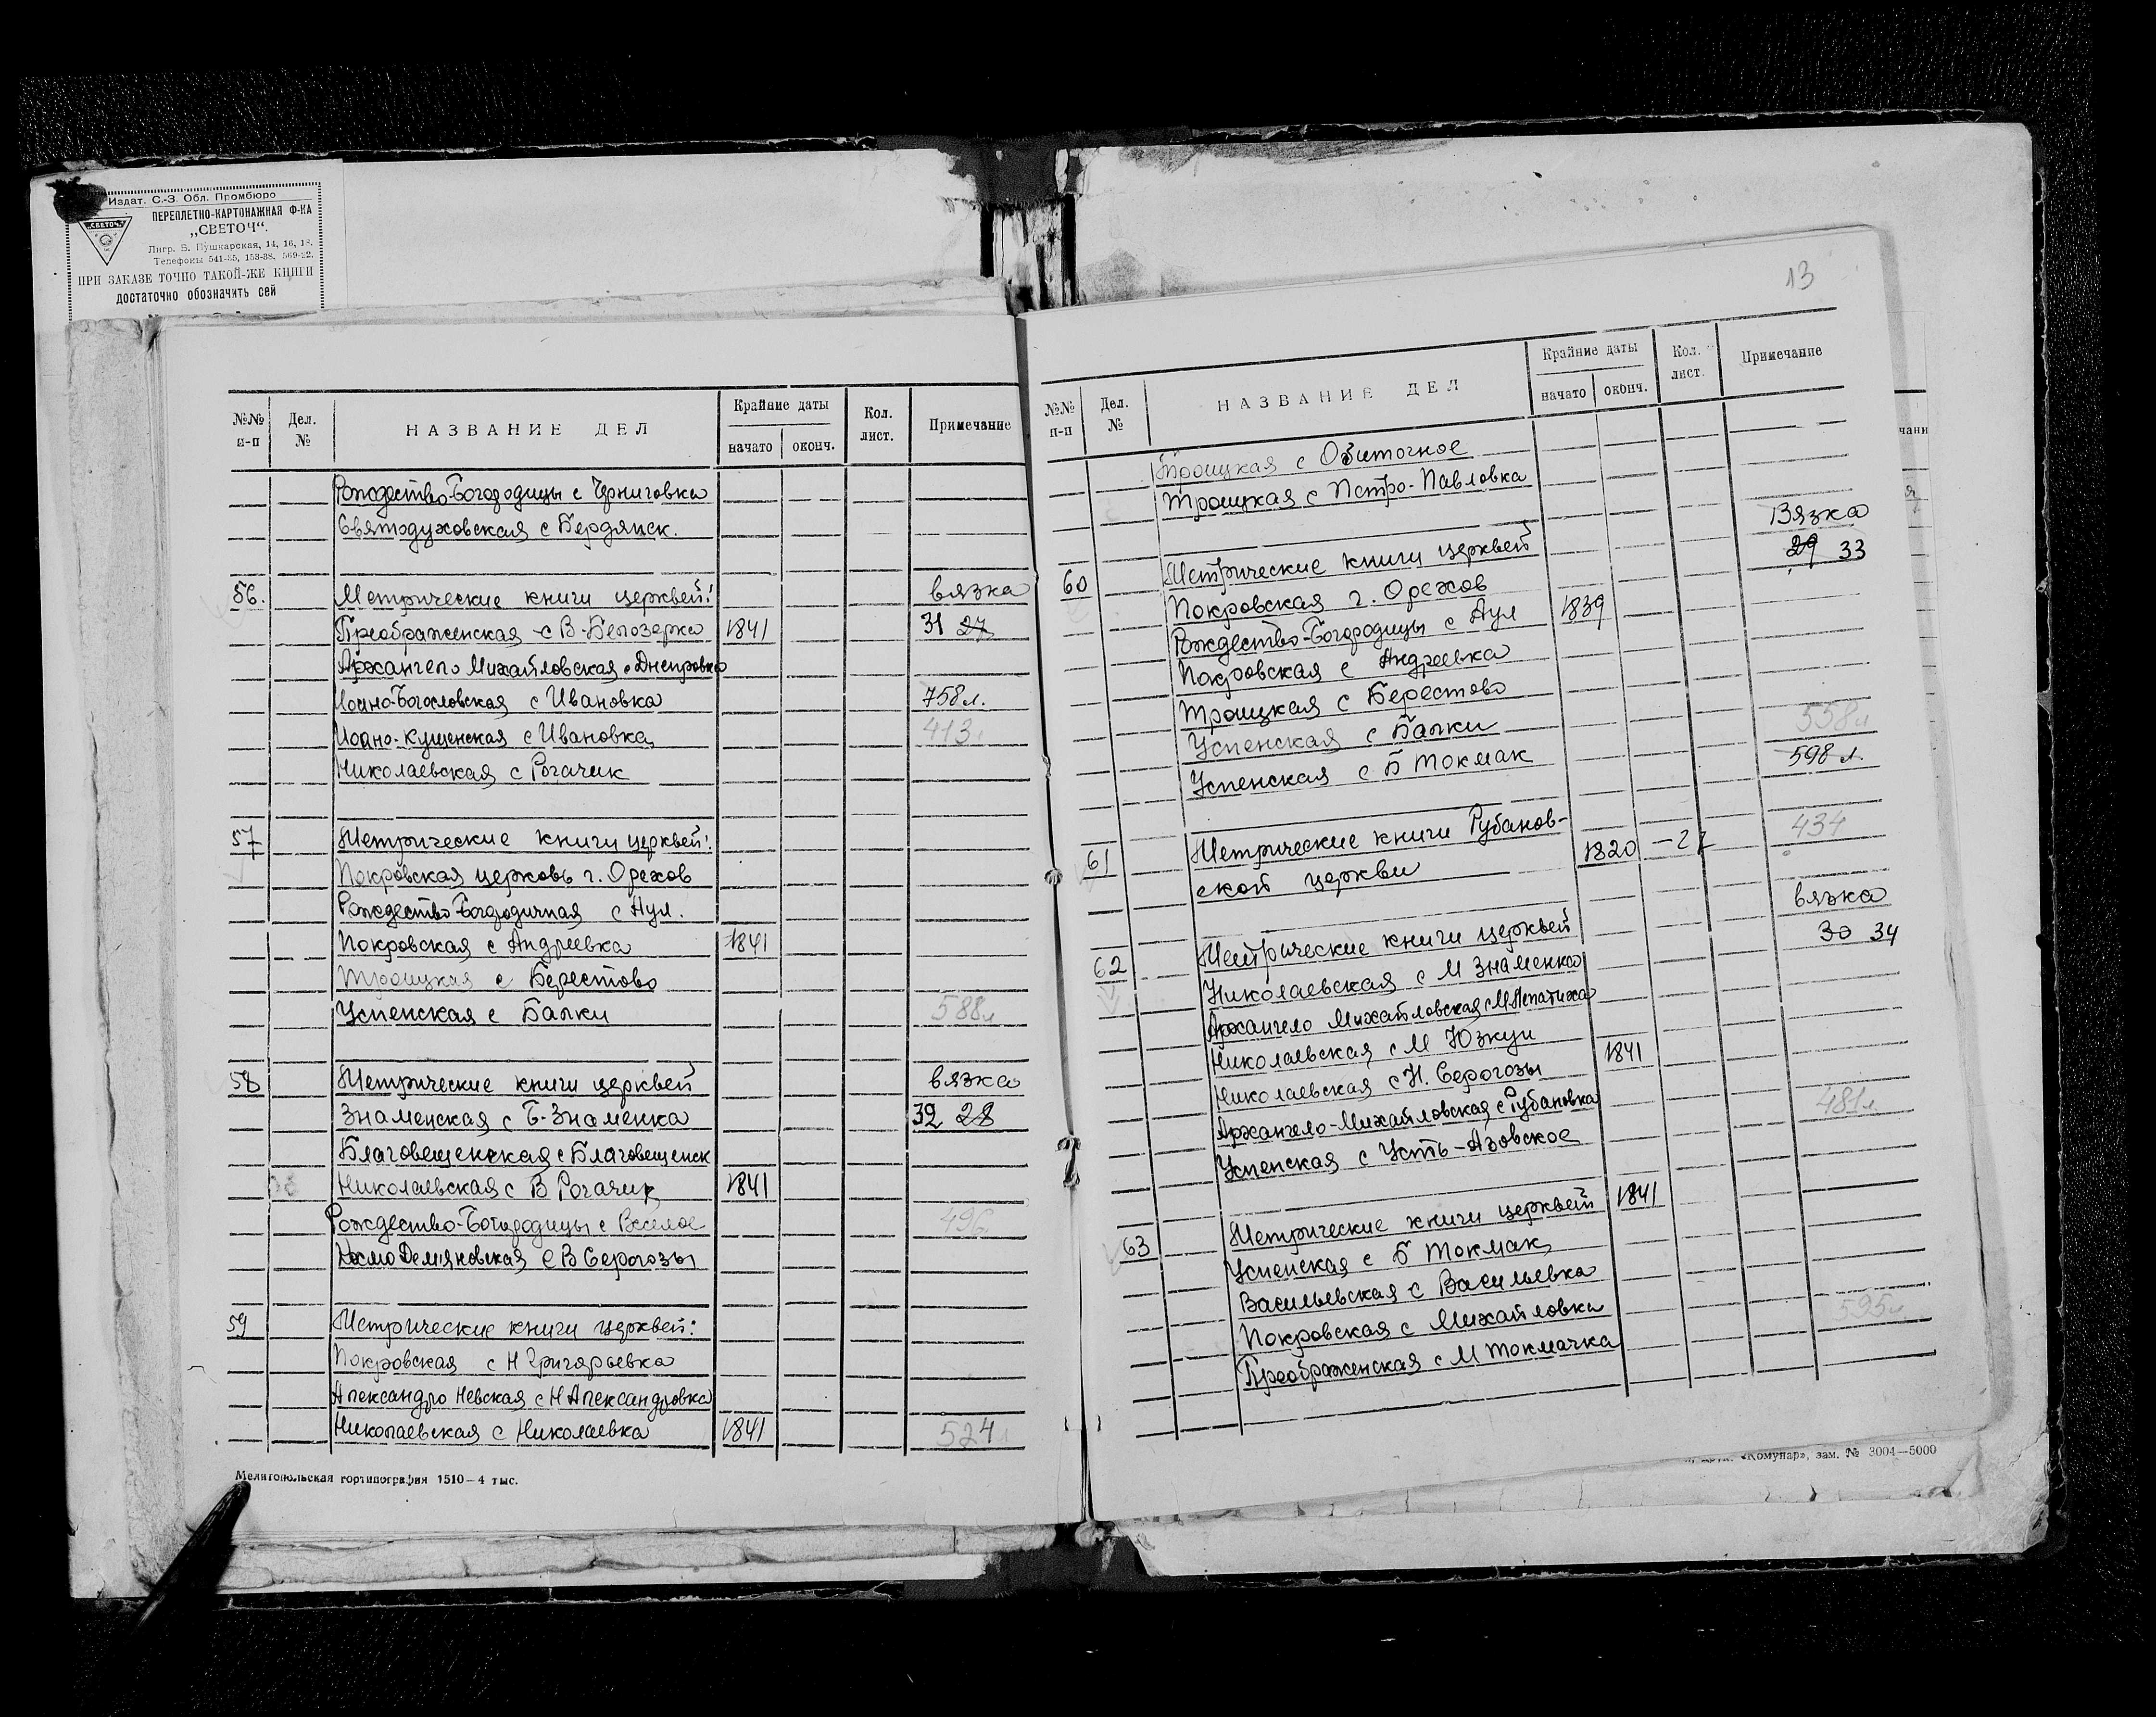 Издат. С.-З. Обл. Промбюро
ПЕРЕПЛЕТНО-КАРТОНАЖНАЯ Ф-КА
„СВЕТОЧ“.
Лнгр. Б. Пушкарская, 14, 16, 18.
Телефоны 541-35, 153-38, 569-22.
ПРИ ЗАКАЗЕ ТОЧНО ТАКОЙ-ЖЕ КНИГИ
достаточно обозначить сей
№№ п-п Дел. № НАЗВАНИЕ ДЕЛ Крайние даты начато оконч. Кол. лист. Примечание
Рождество-Богородицы с Черниговка
Святодуховская с Бердянск.
56. Метрические книги церквей: вязка
Преображенская с В-Белозерка 1841 31 27
Архангело Михайловская с Днепровка
Иоано-Богословская с Ивановка 758 л.
Иоано-Кущенская с Ивановка 413 л
Николаевская с Рогачик
57 Метрические книги церквей:
Покровская церковь г. Орехов
Рождество Богородичная с Аул.
Покровская с Андреевка 1841
Троицкая с Берестово
Успенская с Балки 588 л
58 Метрические книги церквей вязка
Знаменская с Б-Знаменка 32 28
Благовещенская с Благовещенск
Николаевская с В Рогачик 1841
Рождество-Богородицы с Веселое 496
Космо Демяновская с В Серогозы
59 Метрические книги церквей:
Покровская с Н Григорьевка
Александро Невская с Н Александровка
Николаевская с Николаевка 1841 524 л
Мелитопольская гортипография 1510—4 тыс.
13
№№ п-п Дел. № НАЗВАНИЕ ДЕЛ Крайние даты начато оконч. Кол. лист. Примечание
Троицкая с Обиточное
Троицкая с Петро-Павловка
Вязка
60 Метрические книги церквей 29 33
Покровская г. Орехов
Рождество-Богородицы с Аул 1839
Покровская с Андреевка
Троицкая с Берестово
Успенская с Балки 558 л
Успенская с Б Токмак 598 л.
61 Метрические книги Рубанов- 434
ской церкви 1820 —22
вязка
62 Метрические книги церквей 30 34
Николаевская с М Знаменка
Архангело Михайловская с М Лепатиха
Николаевская с М Юзкуи
Николаевская с Н. Серогозы 1841
Архангело-Михайловская с Рубановка
Успенская с Усть-Азовское 481 л
63 Метрические книги церквей 1841
Успенская с Б Токмак
Васильевская с Васильевка
Покровская с Михайловка
Преображенская с М Токмачка 595 л
«Комунар», зам. № 3004—5000